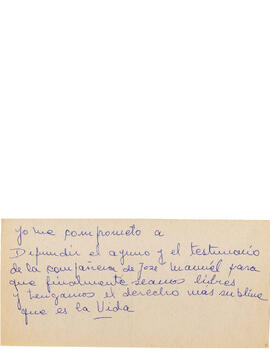 yo me comprometo a
Difundir el ayuno y el testimonio
de la compañera de José Manuél para
que finalmente seamos libres
y tengamos el derecho más sublime
que es la Vida